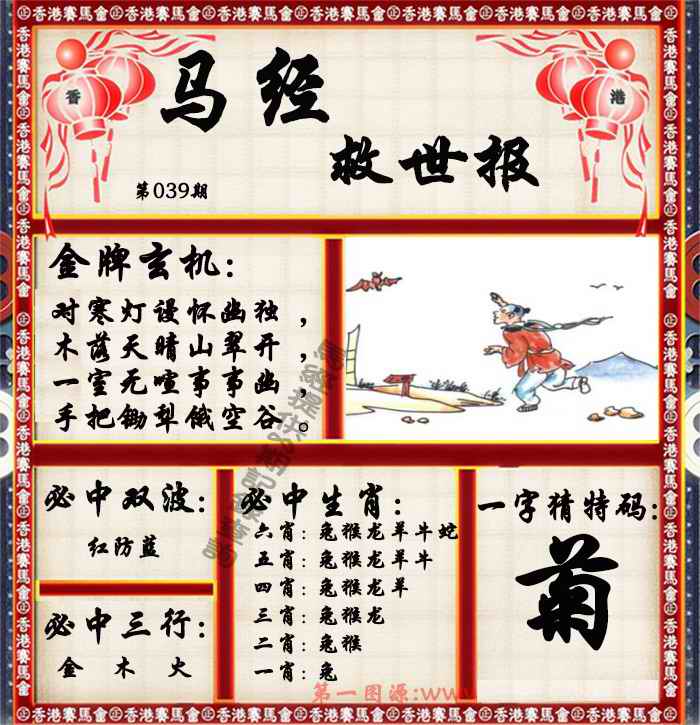 香港賽馬會
香
港
马经
救世报
第039期
金牌玄机:
对寒灯谩怀幽独,
木落天晴山翠开,
一室无喧事事幽,
手把锄犁饿空谷。
必中双波:
红防蓝
必中三行:
金 木 火
必中生肖:
六肖: 兔猴龙羊牛蛇
五肖: 兔猴龙羊牛
四肖: 兔猴龙羊
三肖: 兔猴龙
二肖: 兔猴
一肖: 兔
一字猜特码:
菊
第一图源:www